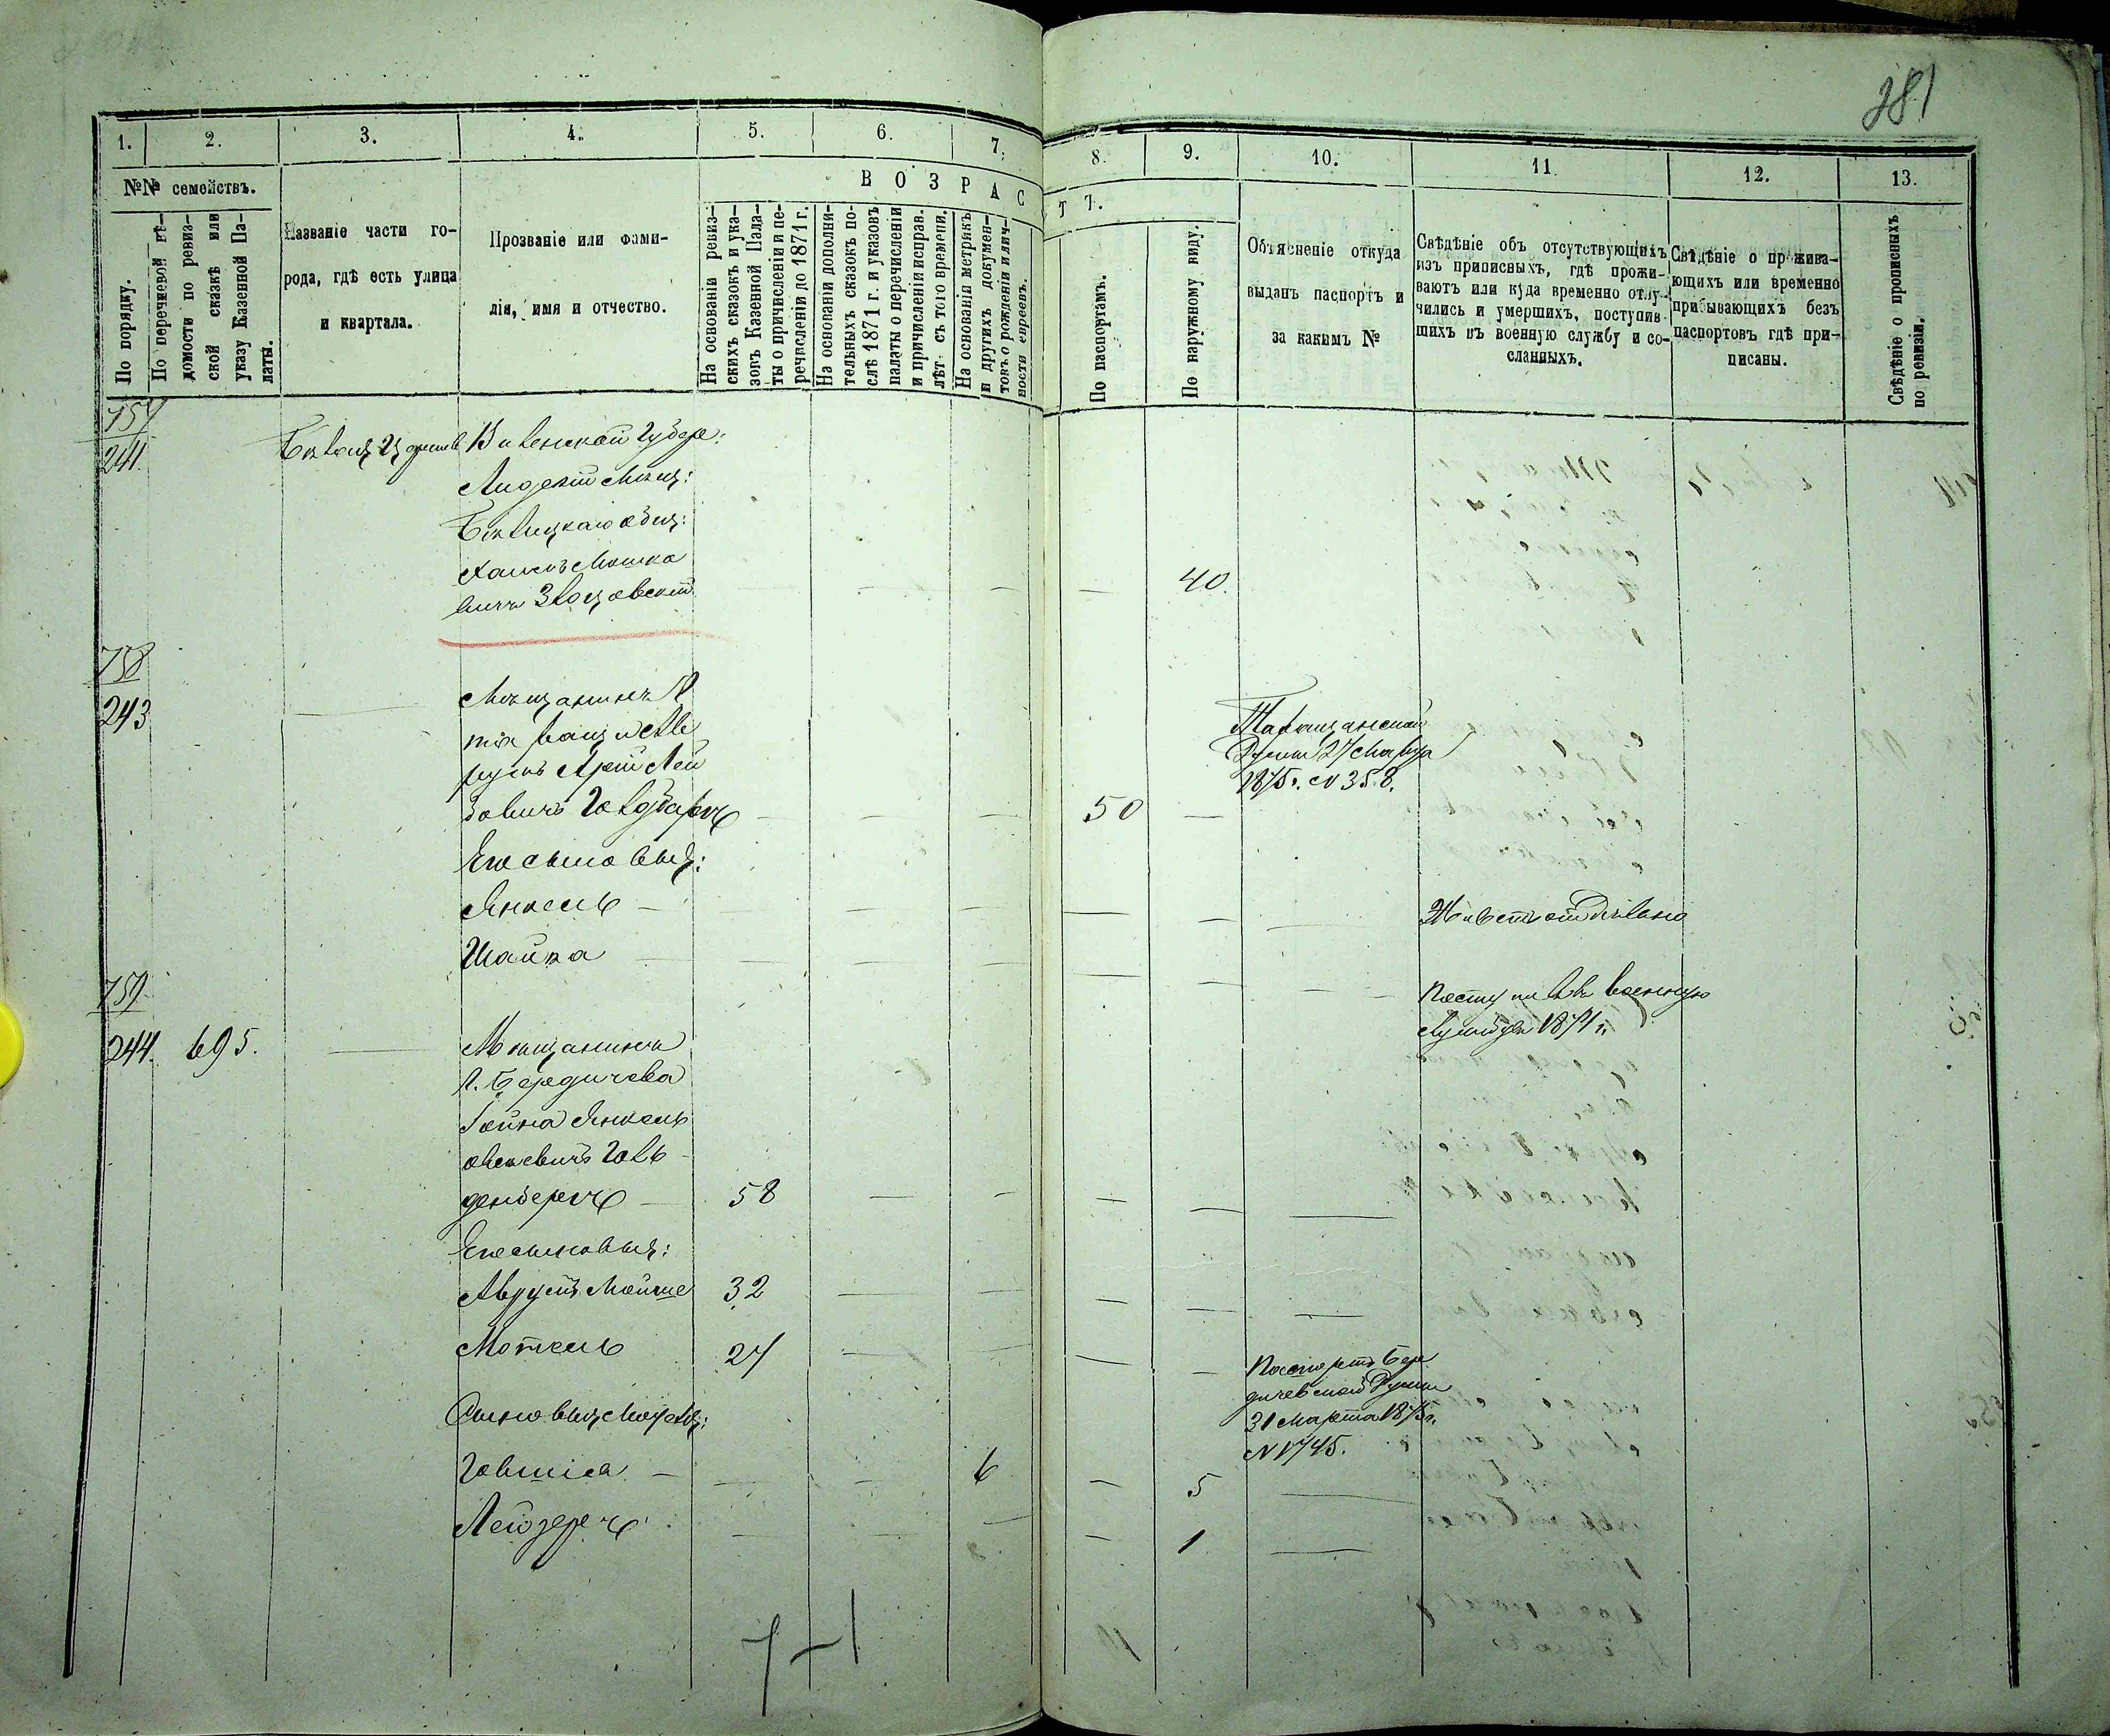 381
1.
2.
3.
4.
5.
6.
7.
8.
9.
10.
11.
12.
13.
№№ семействъ.
ВОЗРАСТЪ.
По порядку.
По перечневой вѣ-
домости по ревиз-
ской сказкѣ или
указу Казенной Па-
латы.
Названіе части го-
рода, гдѣ есть улица
и квартала.
Прозваніе или фами-
лія, имя и отчество.
На основаніи ревиз-
скихъ сказокъ и ука-
зовъ Казенной Пала-
ты о причисленіи и пе-
речисленіи до 1871 г.
На основаніи дополни-
тельныхъ сказокъ по-
слѣ 1871 г. и указовъ
палаты о перечисленіи
и причисленіи исправ.
лѣт. съ того времени.
На основаніи метрикъ
и другихъ докумен-
товъ о рожденіи и лич-
ности евреевъ.
По паспортамъ.
По наружному виду.
Объясненіе откуда
выданъ паспортъ и
за какимъ №
Свѣдѣніе объ отсутствующихъ
изъ приписныхъ, гдѣ прожи-
ваютъ или куда временно отлу-
чились и умершихъ, поступив-
шихъ въ военную службу и со-
сланныхъ.
Свѣдѣніе о прожива-
ющихъ или временно
прибывающихъ безъ
паспортовъ гдѣ при-
писаны.
Свѣдѣніе о прописныхъ
по ревизіи.
757
241.
Виленской Губер:
Лидскій Мѣщ:
общ:
Мошко
вичъ
40.
758
243
Мѣщанинъ М
Таращанской
Думы 27 Марта
1875 г. № 358.
Лей
50
Его сыновья:
Янкель
Живетъ отдѣльно
Шайка
Поступилъ въ военную
службу 1871 г.
759
244. 695.
Мѣщанинъ
г. Бердичева
Янкель
овичъ Голь
денбергъ 58
Его сыновья:
Аврумъ Мойше 32
Мотель 27
Паспортъ Бер
дичевской Думы
31 Марта 1875 г.
№ 1745.
Сыновья
Говшіа 6 5
Лейзеръ 1
7-1